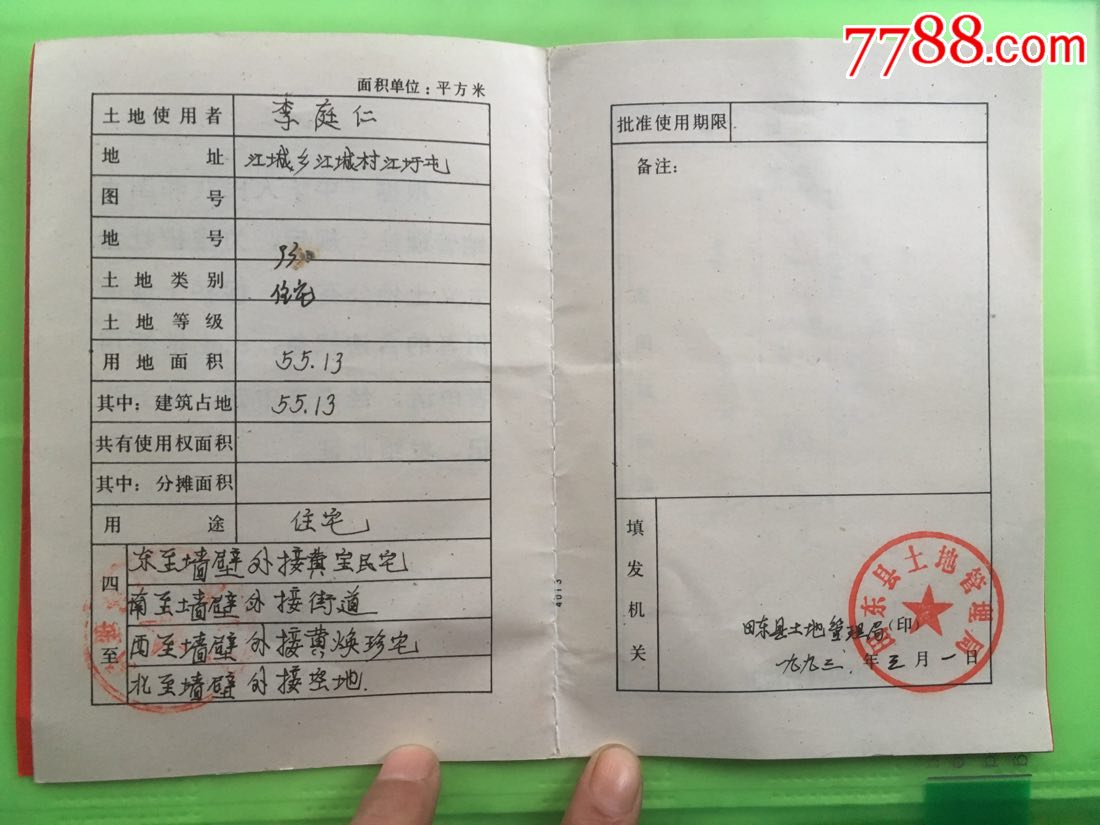 7788.com
面积单位：平方米
土地使用者 李庭仁
地址 江城乡江城村江圩屯
图号
地号
土地类别 住宅
土地等级
用地面积 55.13
其中：建筑占地 55.13
共有使用权面积
其中：分摊面积
用途 住宅
四至
东至墙壁外接黄宝民宅
南至墙壁外接街道
西至墙壁外接黄焕珍宅
北至墙壁外接空地.
批准使用期限
备注：
填发机关
田东县土地管理局(印)
一九九三年三月一日
田东县土地管理局
4013